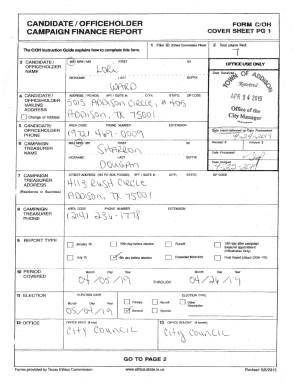 CANDIDATE / OFFICEHOLDER
CAMPAIGN FINANCE REPORT
FORM C/OH
COVER SHEET PG 1
The C/OH Instruction Guide explains how to complete this form.
1 Filer ID (Ethics Commission Filers)
2 Total pages filed:
7
3 CANDIDATE / OFFICEHOLDER NAME
MS / MRS / MR FIRST MI
Lori
NICKNAME LAST SUFFIX
WARD
OFFICE USE ONLY
Date Received
TOWN OF ADDISON
APR 24 2019
Office of the
City Manager
4 CANDIDATE / OFFICEHOLDER MAILING ADDRESS
Change of Address
ADDRESS / PO BOX; APT / SUITE #; CITY; STATE; ZIP CODE
5015 Addison Circle, # 405
Addison, TX 75001
5 CANDIDATE/ OFFICEHOLDER PHONE
AREA CODE PHONE NUMBER EXTENSION
(972) 469-0009
Date Hand-delivered or Date Postmarked
4-24-2019
6 CAMPAIGN TREASURER NAME
MS / MRS / MR FIRST MI
Sharron
NICKNAME LAST SUFFIX
DOUGAN
Receipt # Amount $
Date Processed
Date Imaged
7 CAMPAIGN TREASURER ADDRESS
(Residence or Business)
STREET ADDRESS (NO PO BOX PLEASE); APT / SUITE #; CITY; STATE; ZIP CODE
4113 Rush Circle
Addison, TX 75001
8 CAMPAIGN TREASURER PHONE
AREA CODE PHONE NUMBER EXTENSION
(214) 236-1778
9 REPORT TYPE
January 15 30th day before election Runoff 15th day after campaign treasurer appointment (Officeholder Only)
July 15 8th day before election Exceeded $500 limit Final Report (Attach C/OH - FR)
10 PERIOD COVERED
Month Day Year
04/05/19 THROUGH 04/24/19
11 ELECTION
ELECTION DATE
Month Day Year
05/04/19
ELECTION TYPE
Primary Runoff Other Description
General Special
12 OFFICE
OFFICE HELD (if any)
City Council
13 OFFICE SOUGHT (if known)
City Council
GO TO PAGE 2
Forms provided by Texas Ethics Commission
www.ethics.state.tx.us
Revised 9/8/2015